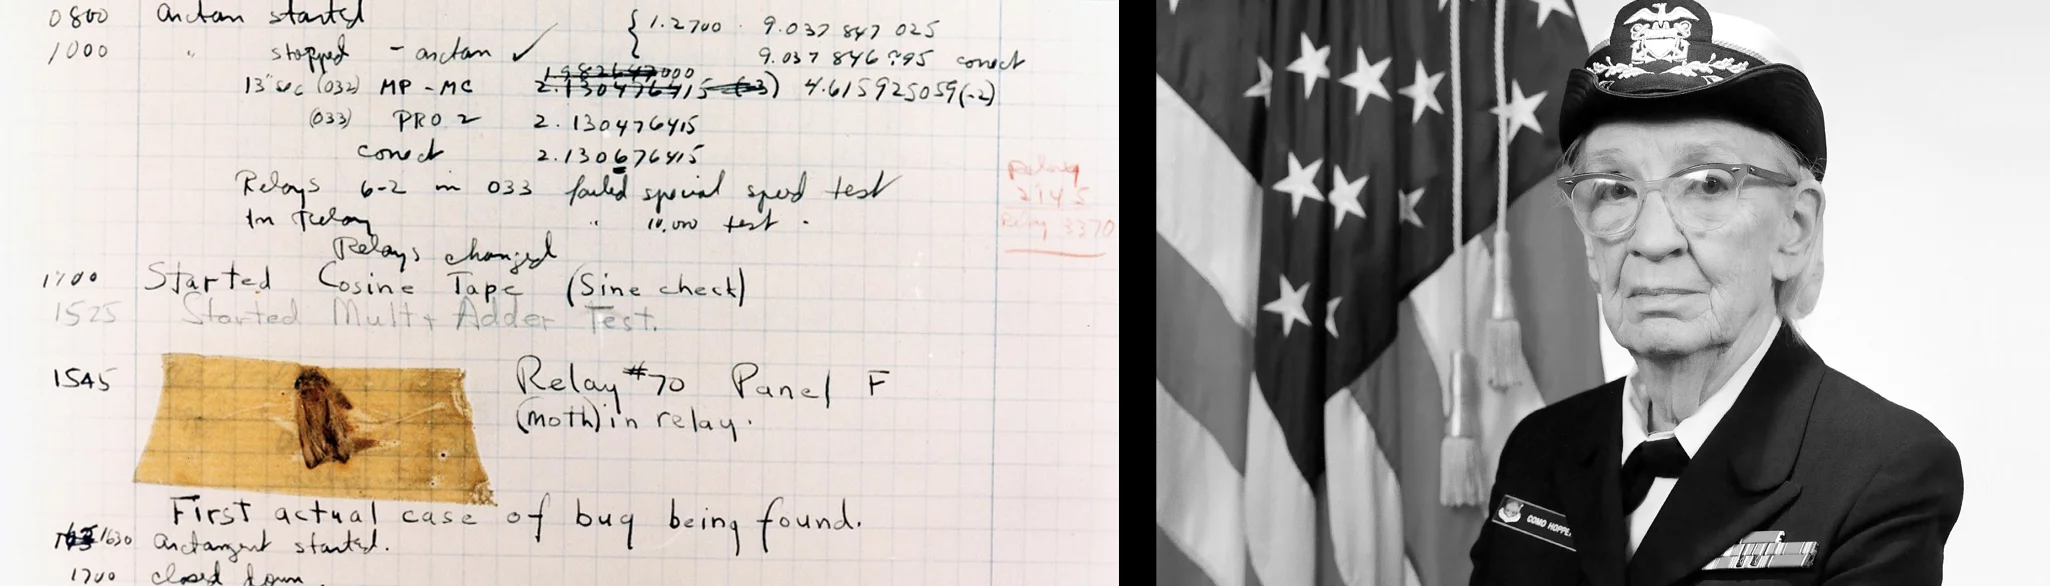 0800 arctan started
1000 " stopped - arctan ✓
{ 1.2700 9.037 847 025
9.037 846 995 conect
13" sec (032) MP - MC 2.130476415 (-3) 4.615925059(-2)
(033) PRO 2 2.130476415
conect 2.130676415
Relays 6-2 in 033 failed special speed test
In Relay " 10.000 test .
Relays changed
Relay
2145
Relay 3370
1700 Started Cosine Tape (Sine check)
1525 Started Mult + Adder Test.
1545 Relay #70 Panel F
(moth) in relay.
First actual case of bug being found.
1630 arctangent started.
1700 closed down.
COMO HOPPE